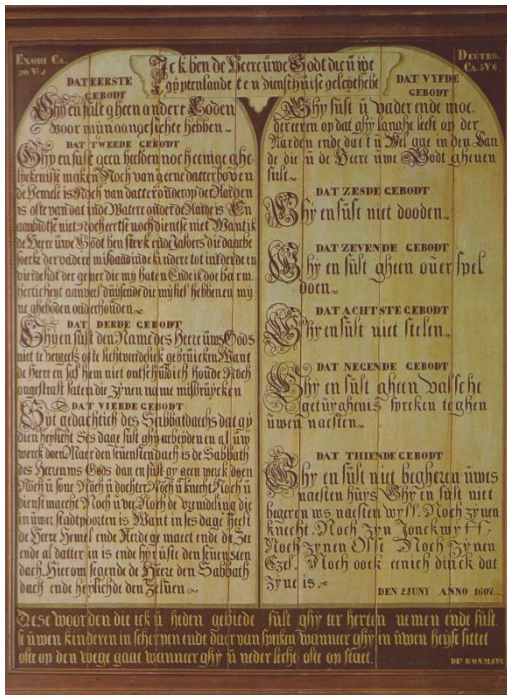 EXODI CA.
20 V. 2
Ick ben de Heere uwe Godt die u wt
Egyptenlandt ten diensthuise geleyt hebt
DEUTRO.
CA. 5 V 6
DAT EERSTE
GEBODT
Ghy en sült gheen andere Goden
voor mijn aangesichte hebben
DAT TWEEDE GEBODT
Ghy en sült geen beelden noch eenige ghe-
lyckenisse maken Noch van geene datter boven
de Hemel is Noch van datter onder op der Aarden
is ofte van dat in de Watere onder de Aarde is En
aanbidtse niet noch eertse noch dientse niet Want jk
de Heere üwe Godt ben sterk ende Jaloers die daar be-
soecke der vadere misdaad in de kindere tot in derde en
vierde lidt der gener die my haten Ende ick doe barm
herticheyt aan veel düysende die my lief hebben en my
ne gheboden onderhouden
DAT DERDE GEBODT
Ghy en sült den Name des Heere üws Gods
niet te vergeefs ofte lichtveerdelick gebrüicken Want
de Heere en sal hem niet ontschüldich houde Noch
ongestraft laten die zynen name misbrüycken
DAT VIERDE GEBODT
Syt gedachtich des Sabbatdaechs dat gy
dien heylicht Ses dage sült ghy arbeyden en al üw
werck doen Maer den sevensten dach is de Sabbath
des Heren üws Gods dan en sült gy geen werck doen
Noch ü sone Noch ü dochter Noch ü knecht Noch ü
dienstmaecht Noch ü vee Noch de vremdeling die
in üwer stadtpoorten is Want in ses dage heeft
de Heere Hemel ende Aerde gemaect ende de Zee
ende al datter in is ende hy rüste den sevensten
dach Hierom segende de Heere den Sabbath
dach ende heylichde den Zelven
DAT VYFDE
GEBODT
Ghy sült ü vader ende moe-
der eeren op dat ghy langhe leeft op der
Aarden ende dat t ü wel gae in den Lan
de die ü de Heere üwe Godt gheven
sült
DAT ZESDE GEBODT
Ghy en sült niet dooden
DAT ZEVENDE GEBODT
Ghy en sült gheen over spel
doen
DAT ACHTSTE GEBODT
Ghy en sült niet stelen
DAT NEGENDE GEBODT
Ghy en sült gheen valsche
getüyghenis spreken teghen
üwen naesten
DAT THIENDE GEBODT
Ghy en sült niet begheren üwes
naesten hüys Ghy en sült niet
begeren ws naesten wyff Noch zynen
knecht Noch zyn Jonckwyff
Noch zynen Osse Noch zynen
Ezel Noch oock eenich dinck dat
zyne is
DEN 2 JUNI ANNO 1607
Dese woorden die ick ü heden gebiede sült ghy ter herten nemen ende sült
se üwen kinderen in scherpen ende daar van spreken wanneer ghy in üwen hüyse sittet
ofte op den wege gaat wanneer ghy ü neder lecht ofte op staet